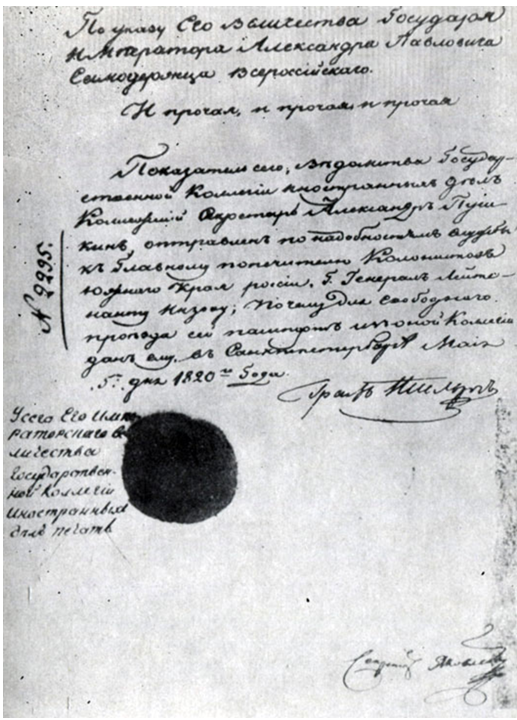 По указу Его Величества Государя
Императора Александра Павловича
Самодержца Всероссійскаго.
И прочая, и прочая, и прочая
Показатель сего, Вѣдомства Государ-
ственной Коллегіи иностранныхъ дѣлъ
Коллежскій Секретарь Александръ Пуш-
кинъ, отправленъ по надобностямъ службы
къ Главному попечителю Колонистовъ
Южнаго Края россіи, Г. Генералъ Лейте-
нанту Инзову; почему для свободнаго
проѣзда сей пашпортъ изъ оной Коллегіи
данъ ему въ Санктпетербургѣ Маія
5. дня 1820го Года.
Графъ Нессельродъ
№ 2295.
У сего Его Импе-
раторскаго Ве-
личества
Государствен-
ной Коллегіи
Иностранныхъ
дѣлъ печать
Секретарь Яковлевъ